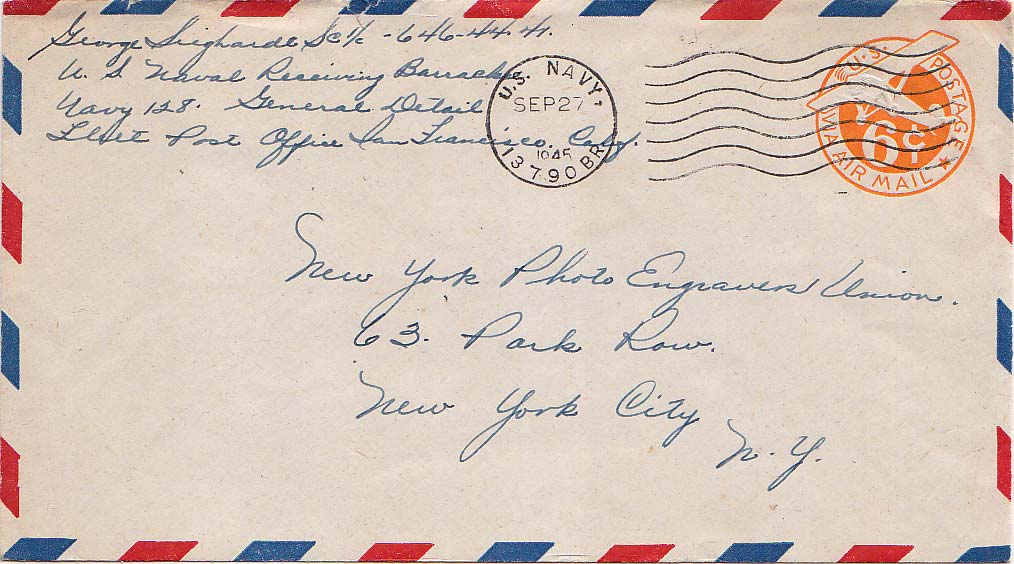 George Sieghardt Sc 1/c - 646-44-41.
U. S. Naval Receiving Barracks
Navy 128. General Detail
Fleet Post Office San Francisco. Calif.
U.S. NAVY
SEP 27
1945
13790 BR.
U.S. POSTAGE
6¢
VIA AIR MAIL
New York Photo Engravers Union.
63. Park Row.
New York City
N. Y.